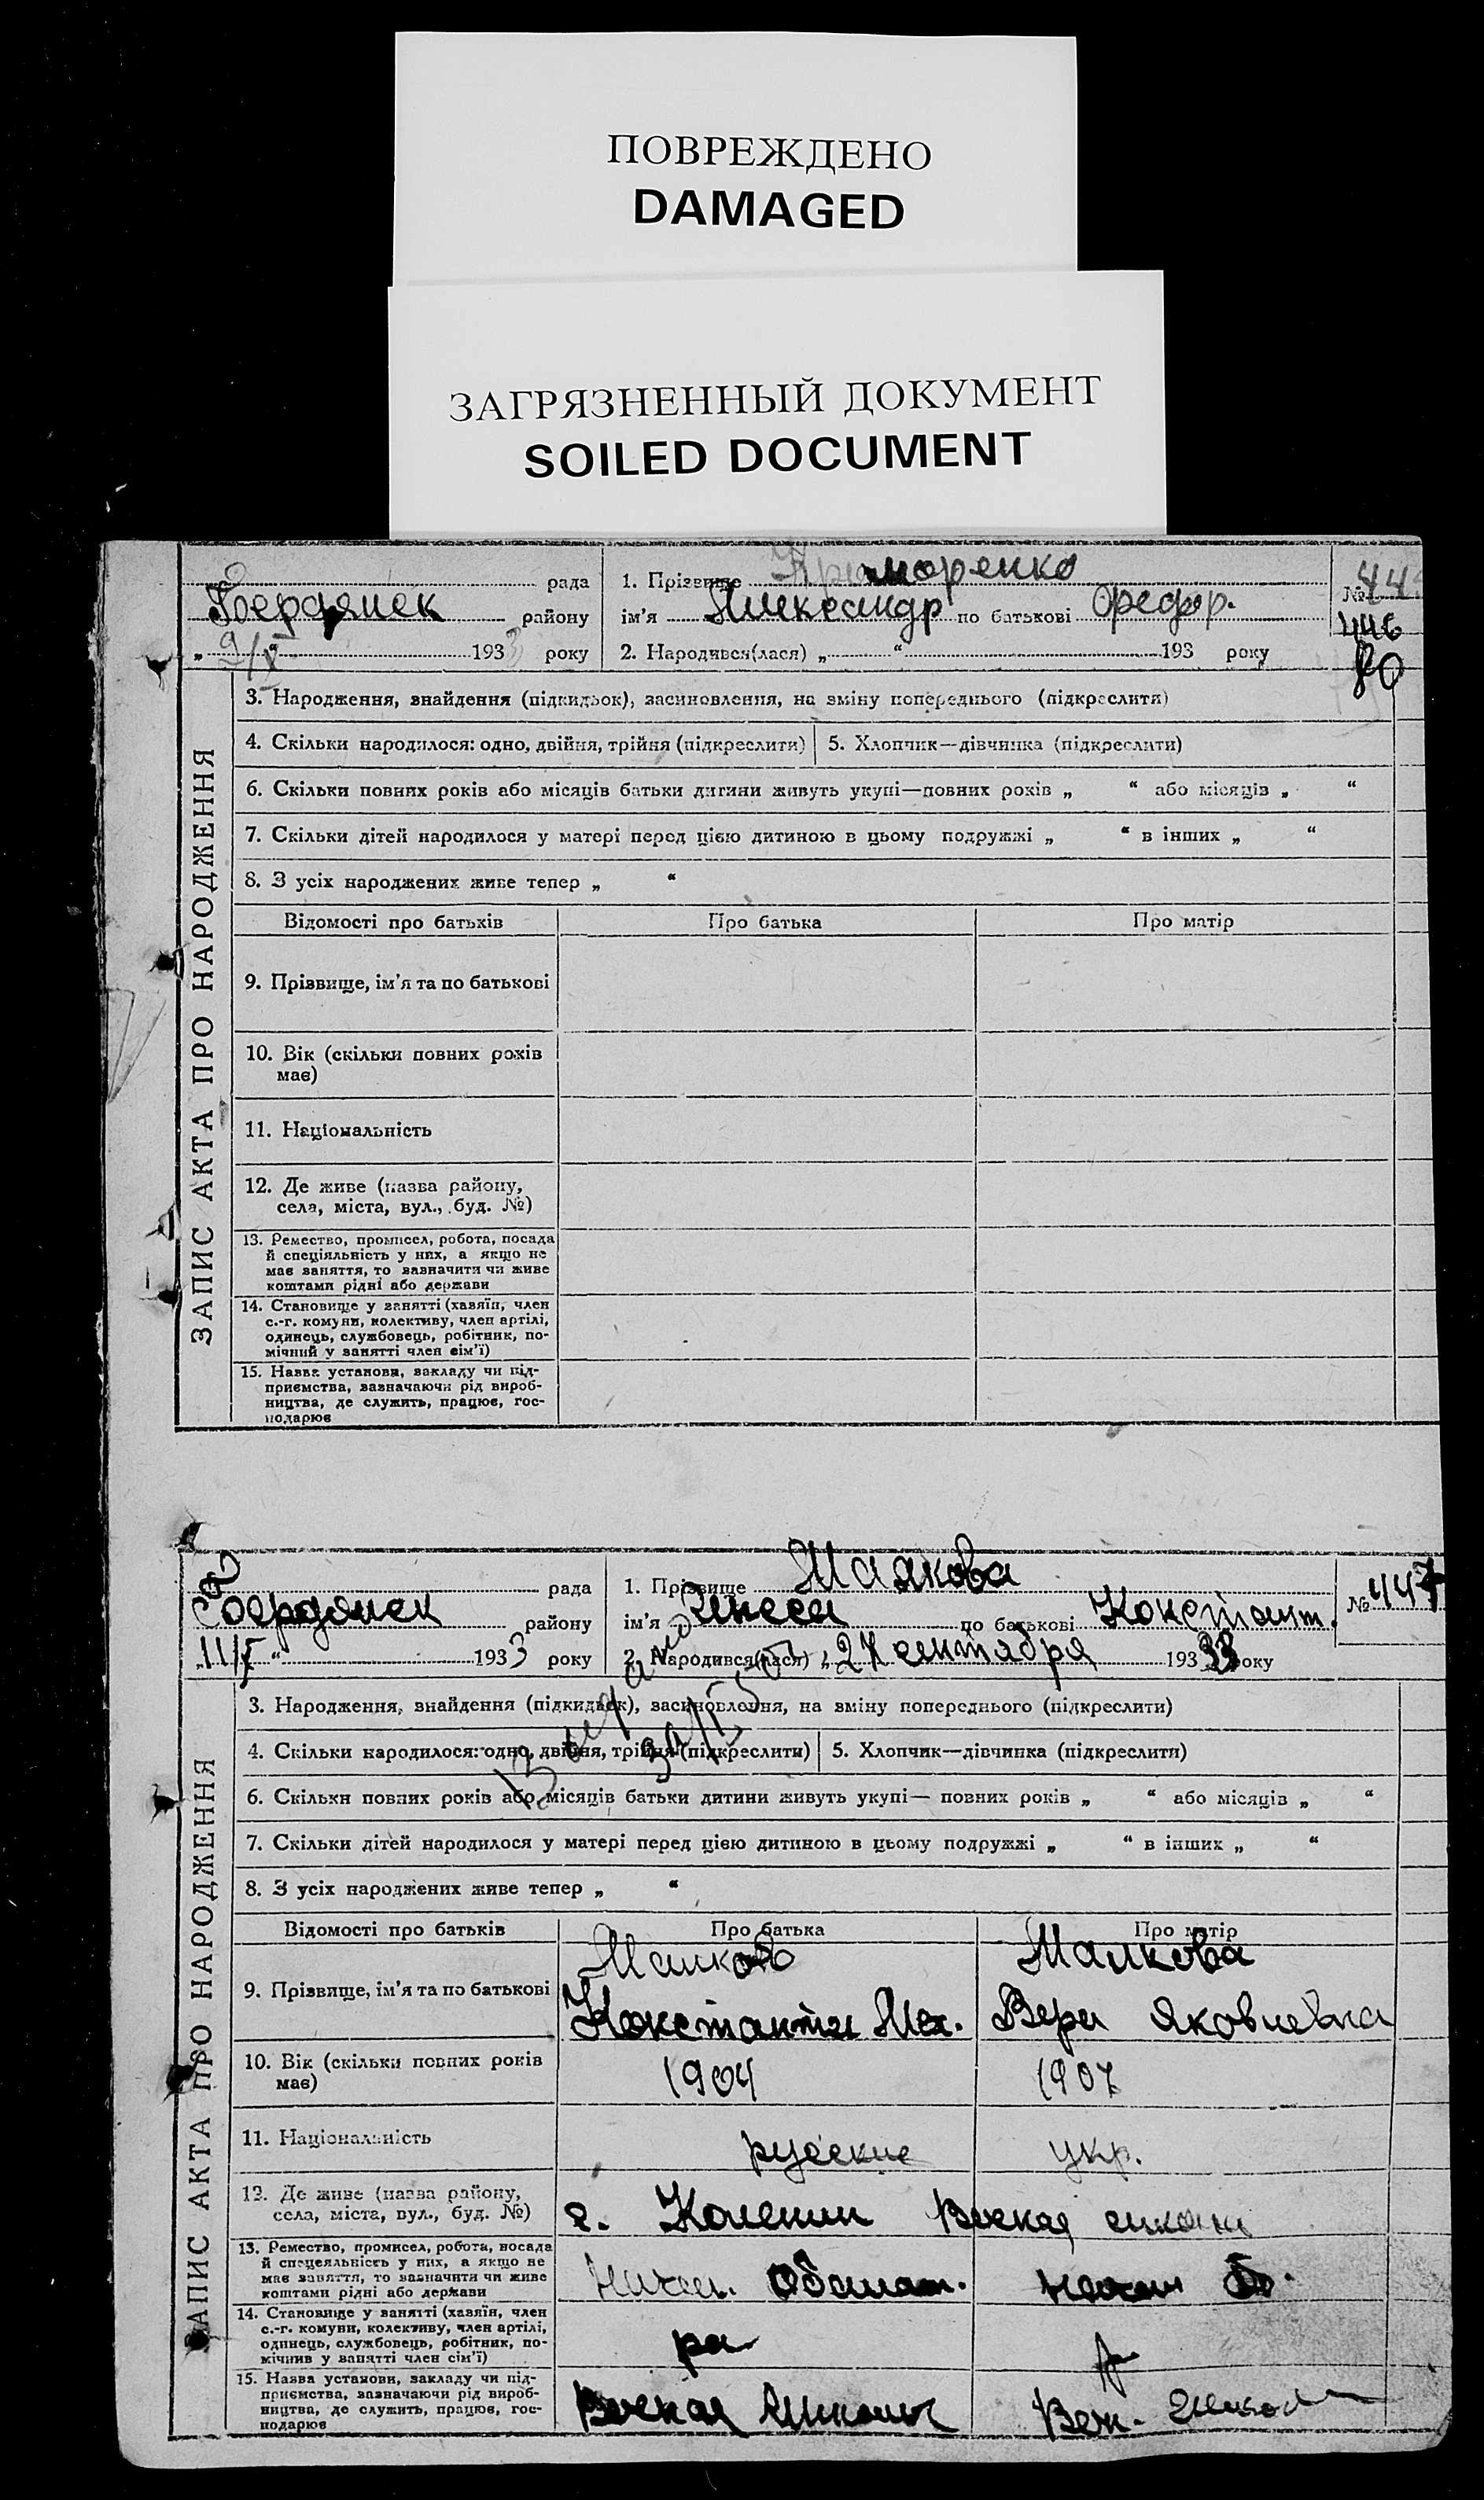 ПОВРЕЖДЕНО
DAMAGED
ЗАГРЯЗНЕННЫЙ ДОКУМЕНТ
SOILED DOCUMENT
ЗАПИС АКТА ПРО НАРОДЖЕННЯ
рада
Бердянск району
9/X 193 року
1. Прізвище
ім'я Александр по батькові Федор.
2. Народився(лася) „ “ 193 року
№ 44
446
3. Народження, знайдення (підкидьок), засиновлення, на зміну попереднього (підкреслити)
4. Скільки народилося: одно, двійня, трійня (підкреслити)
5. Хлопчик—дівчинка (підкреслити)
6. Скільки повних років або місяців батьки дитини живуть укупі—повних років „ “ або місяців „ “
7. Скільки дітей народилося у матері перед цією дитиною в цьому подружжі „ “ в інших „ “
8. З усіх народжених живе тепер „ “
Відомості про батьків Про батька Про матір
9. Прізвище, ім'я та по батькові
10. Вік (скільки повних років
має)
11. Національність
12. Де живе (назва району,
села, міста, вул., буд. №)
13. Ремество, промисел, робота, посада
й спеціяльність у них, а якщо не
має заняття, то зазначити чи живе
коштами рідні або держави
14. Становище у занятті (хазяїн, член
с.-г. комуни, колективу, член артілі,
одинець, службовець, робітник, по-
мічний у занятті член сім'ї)
15. Назва установи, закладу чи під-
приємства, зазначаючи рід вироб-
ництва, де служить, працює, гос-
подарює
ЗАПИС АКТА ПРО НАРОДЖЕННЯ
рада
Бердянск району
11/X “ 1933 року
1. Прізвище Маякова
ім'я Инеса по батькові Констант.
2. Народився(лася) „27 сентября 1933 року
№ 447
3. Народження, знайдення (підкидьок), засиновлення, на зміну попереднього (підкреслити)
4. Скільки народилося: одно, двійня, трійня (підкреслити)
5. Хлопчик—дівчинка (підкреслити)
6. Скільки повних років або місяців батьки дитини живуть укупі— повних років „ “ або місяців „ “
7. Скільки дітей народилося у матері перед цією дитиною в цьому подружжі „ “ в інших „ “
8. З усіх народжених живе тепер „ “
Відомості про батьків Про батька Про матір
Маяков Маякова
9. Прізвище, ім'я та по батькові
Константин Вера Яковлевна
10. Вік (скільки повних років
має)
1904 1907
11. Національність
русские укр.
12. Де живе (назва району,
села, міста, вул., буд. №)
г.
13. Ремество, промисел, робота, посада
й спецеяльність у них, а якщо не
має заняття, то зазначити чи живе
коштами рідні або держави
14. Становище у занятті (хазяїн, член
с.-г. комуни, колективу, член артілі,
одинець, службовець, робітник, по-
мічнив у занятті член сім'ї)
ра
15. Назва установи, закладу чи під-
приємства, зазначаючи рід вироб-
ництва, де служить, працює, гос-
подарює